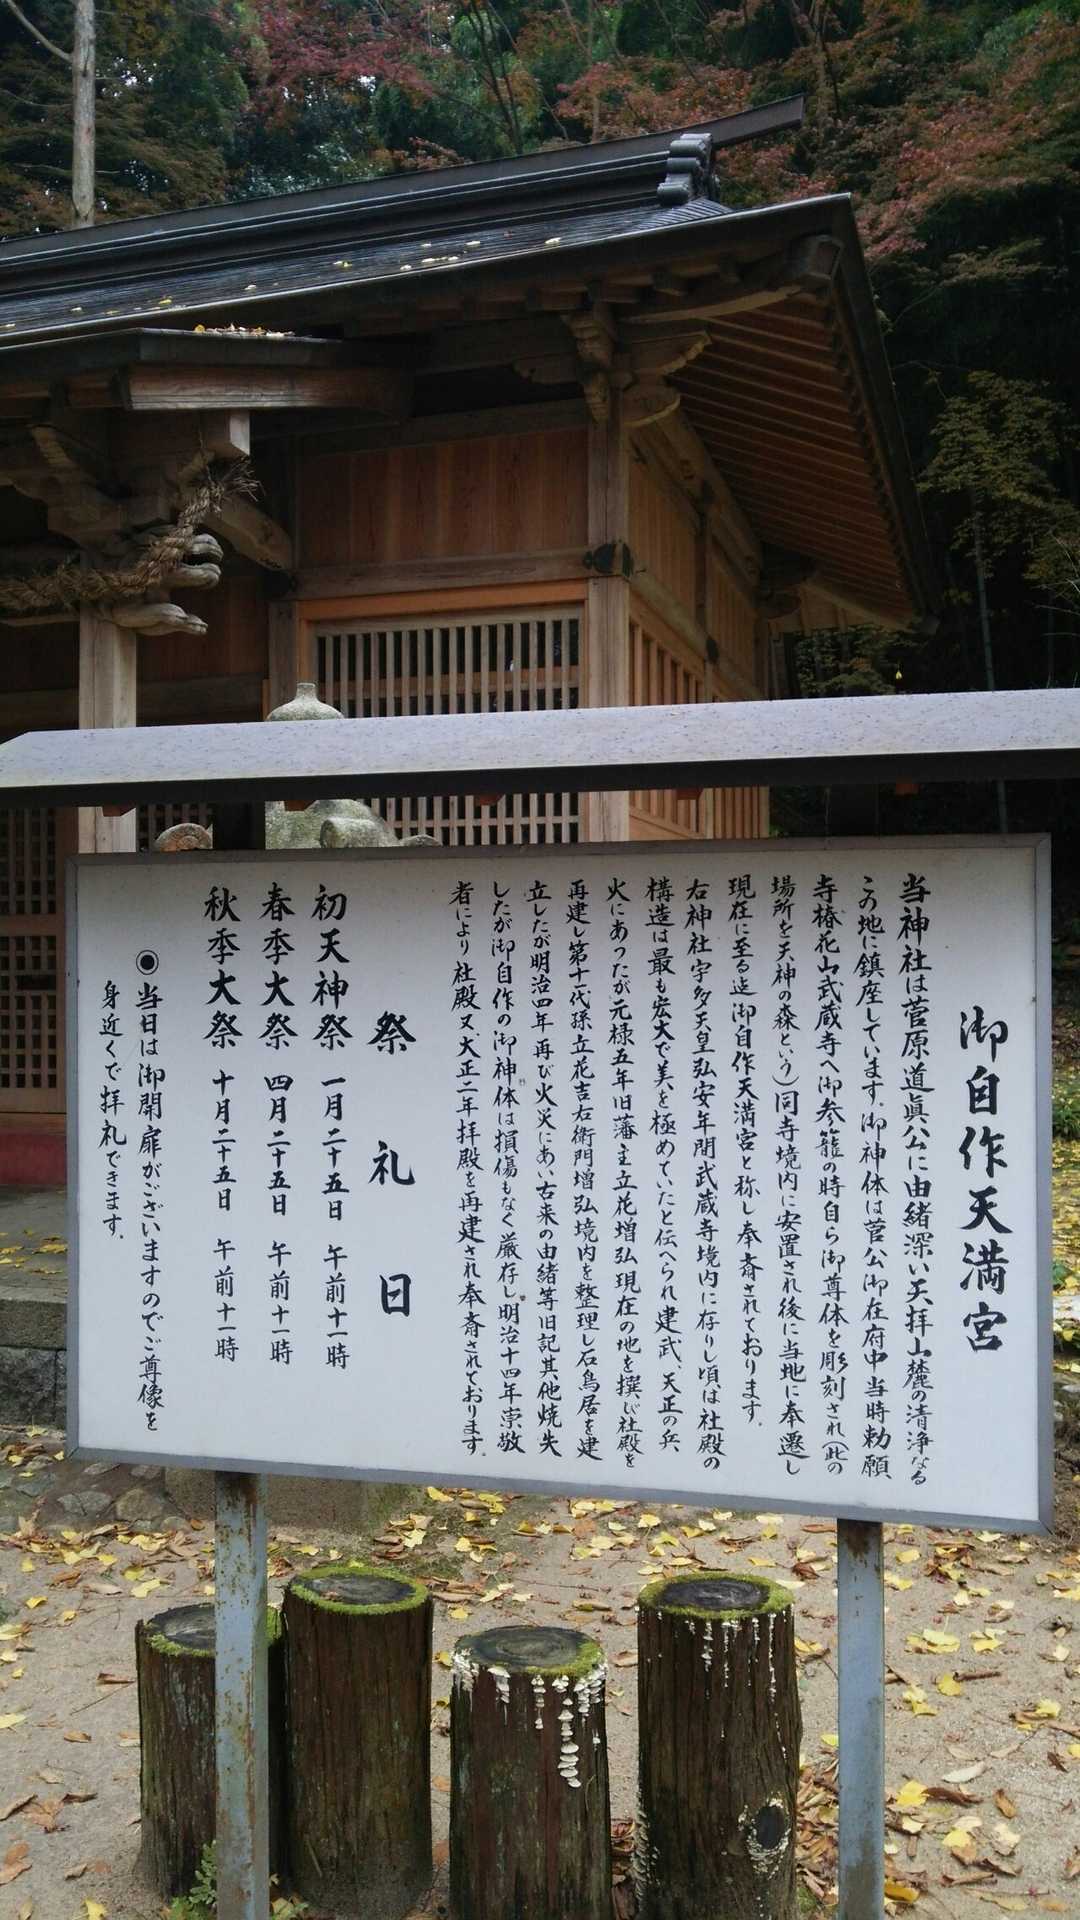 御自作天満宮
当神社は菅原道眞公に由緒深い天拝山麓の清浄なる
この地に鎮座しています。御神体は菅公御在府中当時勅願
寺椿花山武蔵寺へ御参籠の時自ら御尊体を彫刻され(此の
場所を天神の森という)同寺境内に安置され後に当地に奉遷し
現在に至る迄御自作天満宮と称し奉斎されております。
右神社宇多天皇弘安年間武蔵寺境内に存りし頃は社殿の
構造は最も宏大で美を極めていたと伝へられ建武、天正の兵
火にあつたが元禄五年旧藩主立花増弘現在の地を撰び社殿を
再建し第十一代孫立花吉右衛門増弘境内を整理し石鳥居を建
立したが明治四年再び火災にあい古来の由緒等旧記其他焼失
したが御自作の御神体は損傷もなく厳存し明治十四年崇敬
者により社殿又、大正二年拝殿を再建され奉斎されております。
祭礼日
初天神祭 一月二十五日 午前十一時
春季大祭 四月二十五日 午前十一時
秋季大祭 十月二十五日 午前十一時
◉当日は御開扉がございますのでご尊像を
身近くで拝礼できます。